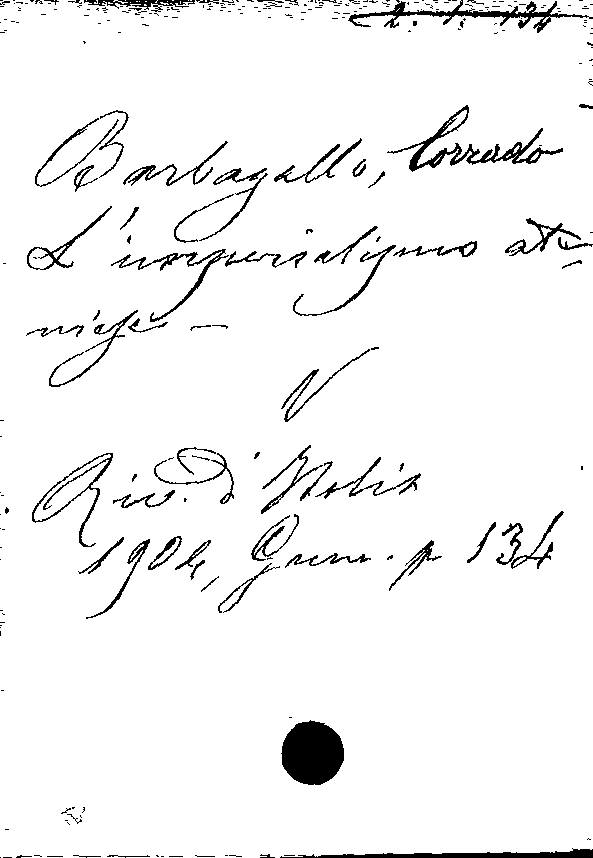 2. 1. 134
Barbagallo, Corrado
L'imperialismo ate-
niese —
V
Riv. d'Italia
1904, Genn. p 134